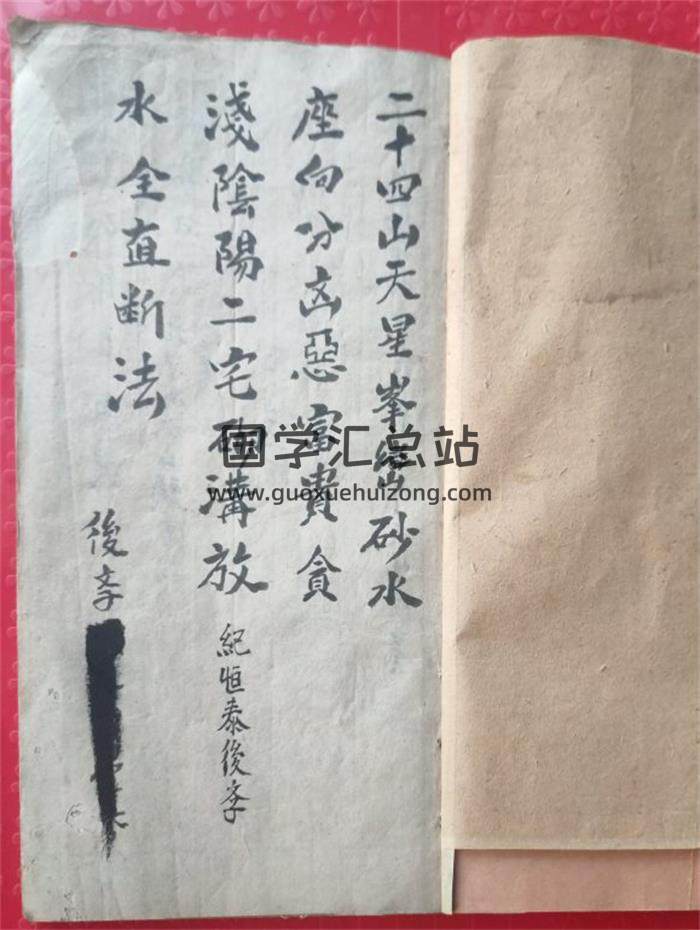 二十四山天星峯巒砂水
座向分凶惡富貴貪
淺陰陽二宅 溝放
水全直断法
紀恒泰後李
後李
国学汇总站
www.guoxuehuizong.com